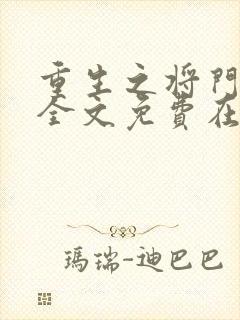 重生之将門
全文免費在
瑪瑞-迪巴巴